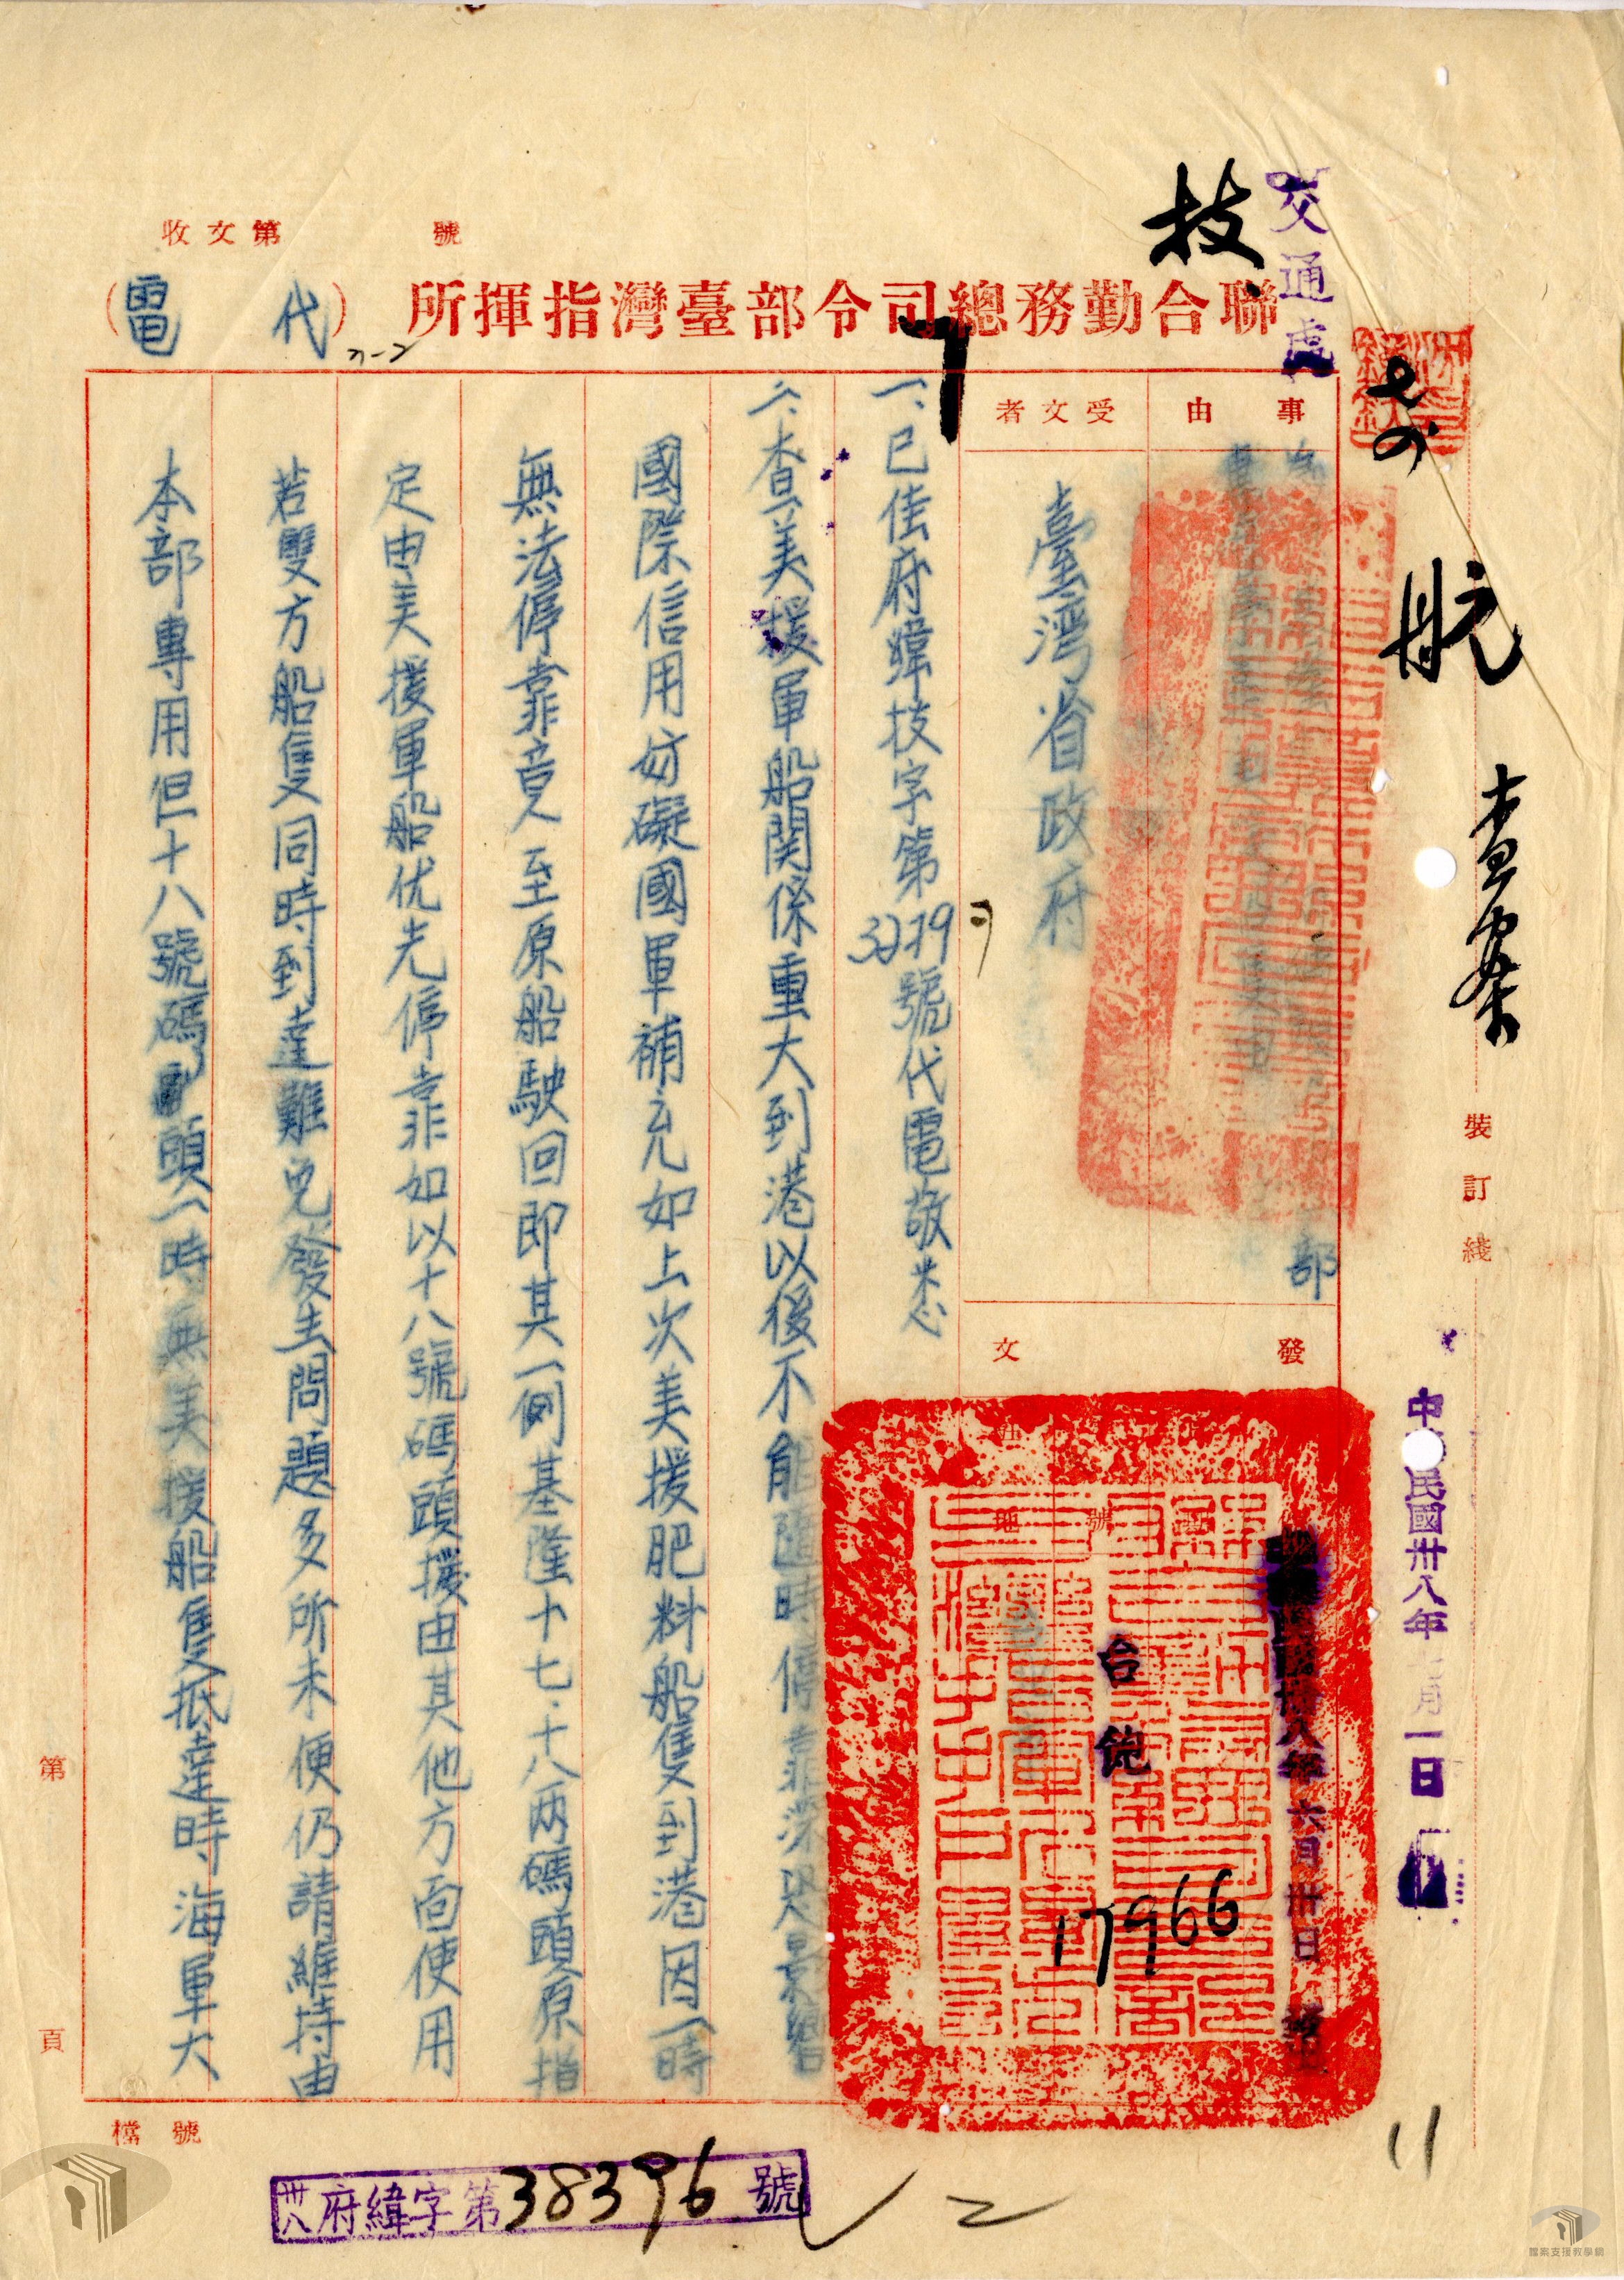 交通處
技
收文第　　　號
聯合勤務總司令部臺灣指揮所（代電）
航
查案
裝訂綫
中民國卅八年七月一日
事由
部
受文者
臺灣省政府
發文
八年六月卅日
台
17966
一、已佳府緯技字第3279號代電敬悉
二、查美援軍船関係重大到港以後不能隨時停靠深恐影響
國際信用妨礙國軍補充如上次美援肥料船隻到港因一時
無法停靠竟至原船駛回即其一例基隆十七、十八兩碼頭原指
定由美援軍船优先停靠如以十八號碼頭撥由其他方面使用
若雙方船隻同時到達難免發生問題多所未便仍請維持由
本部專用但十八號碼頭一時無美援船隻抵達時海軍大
第　　頁
檔號
卅八府緯字第38396號
11
檔案支援教學網